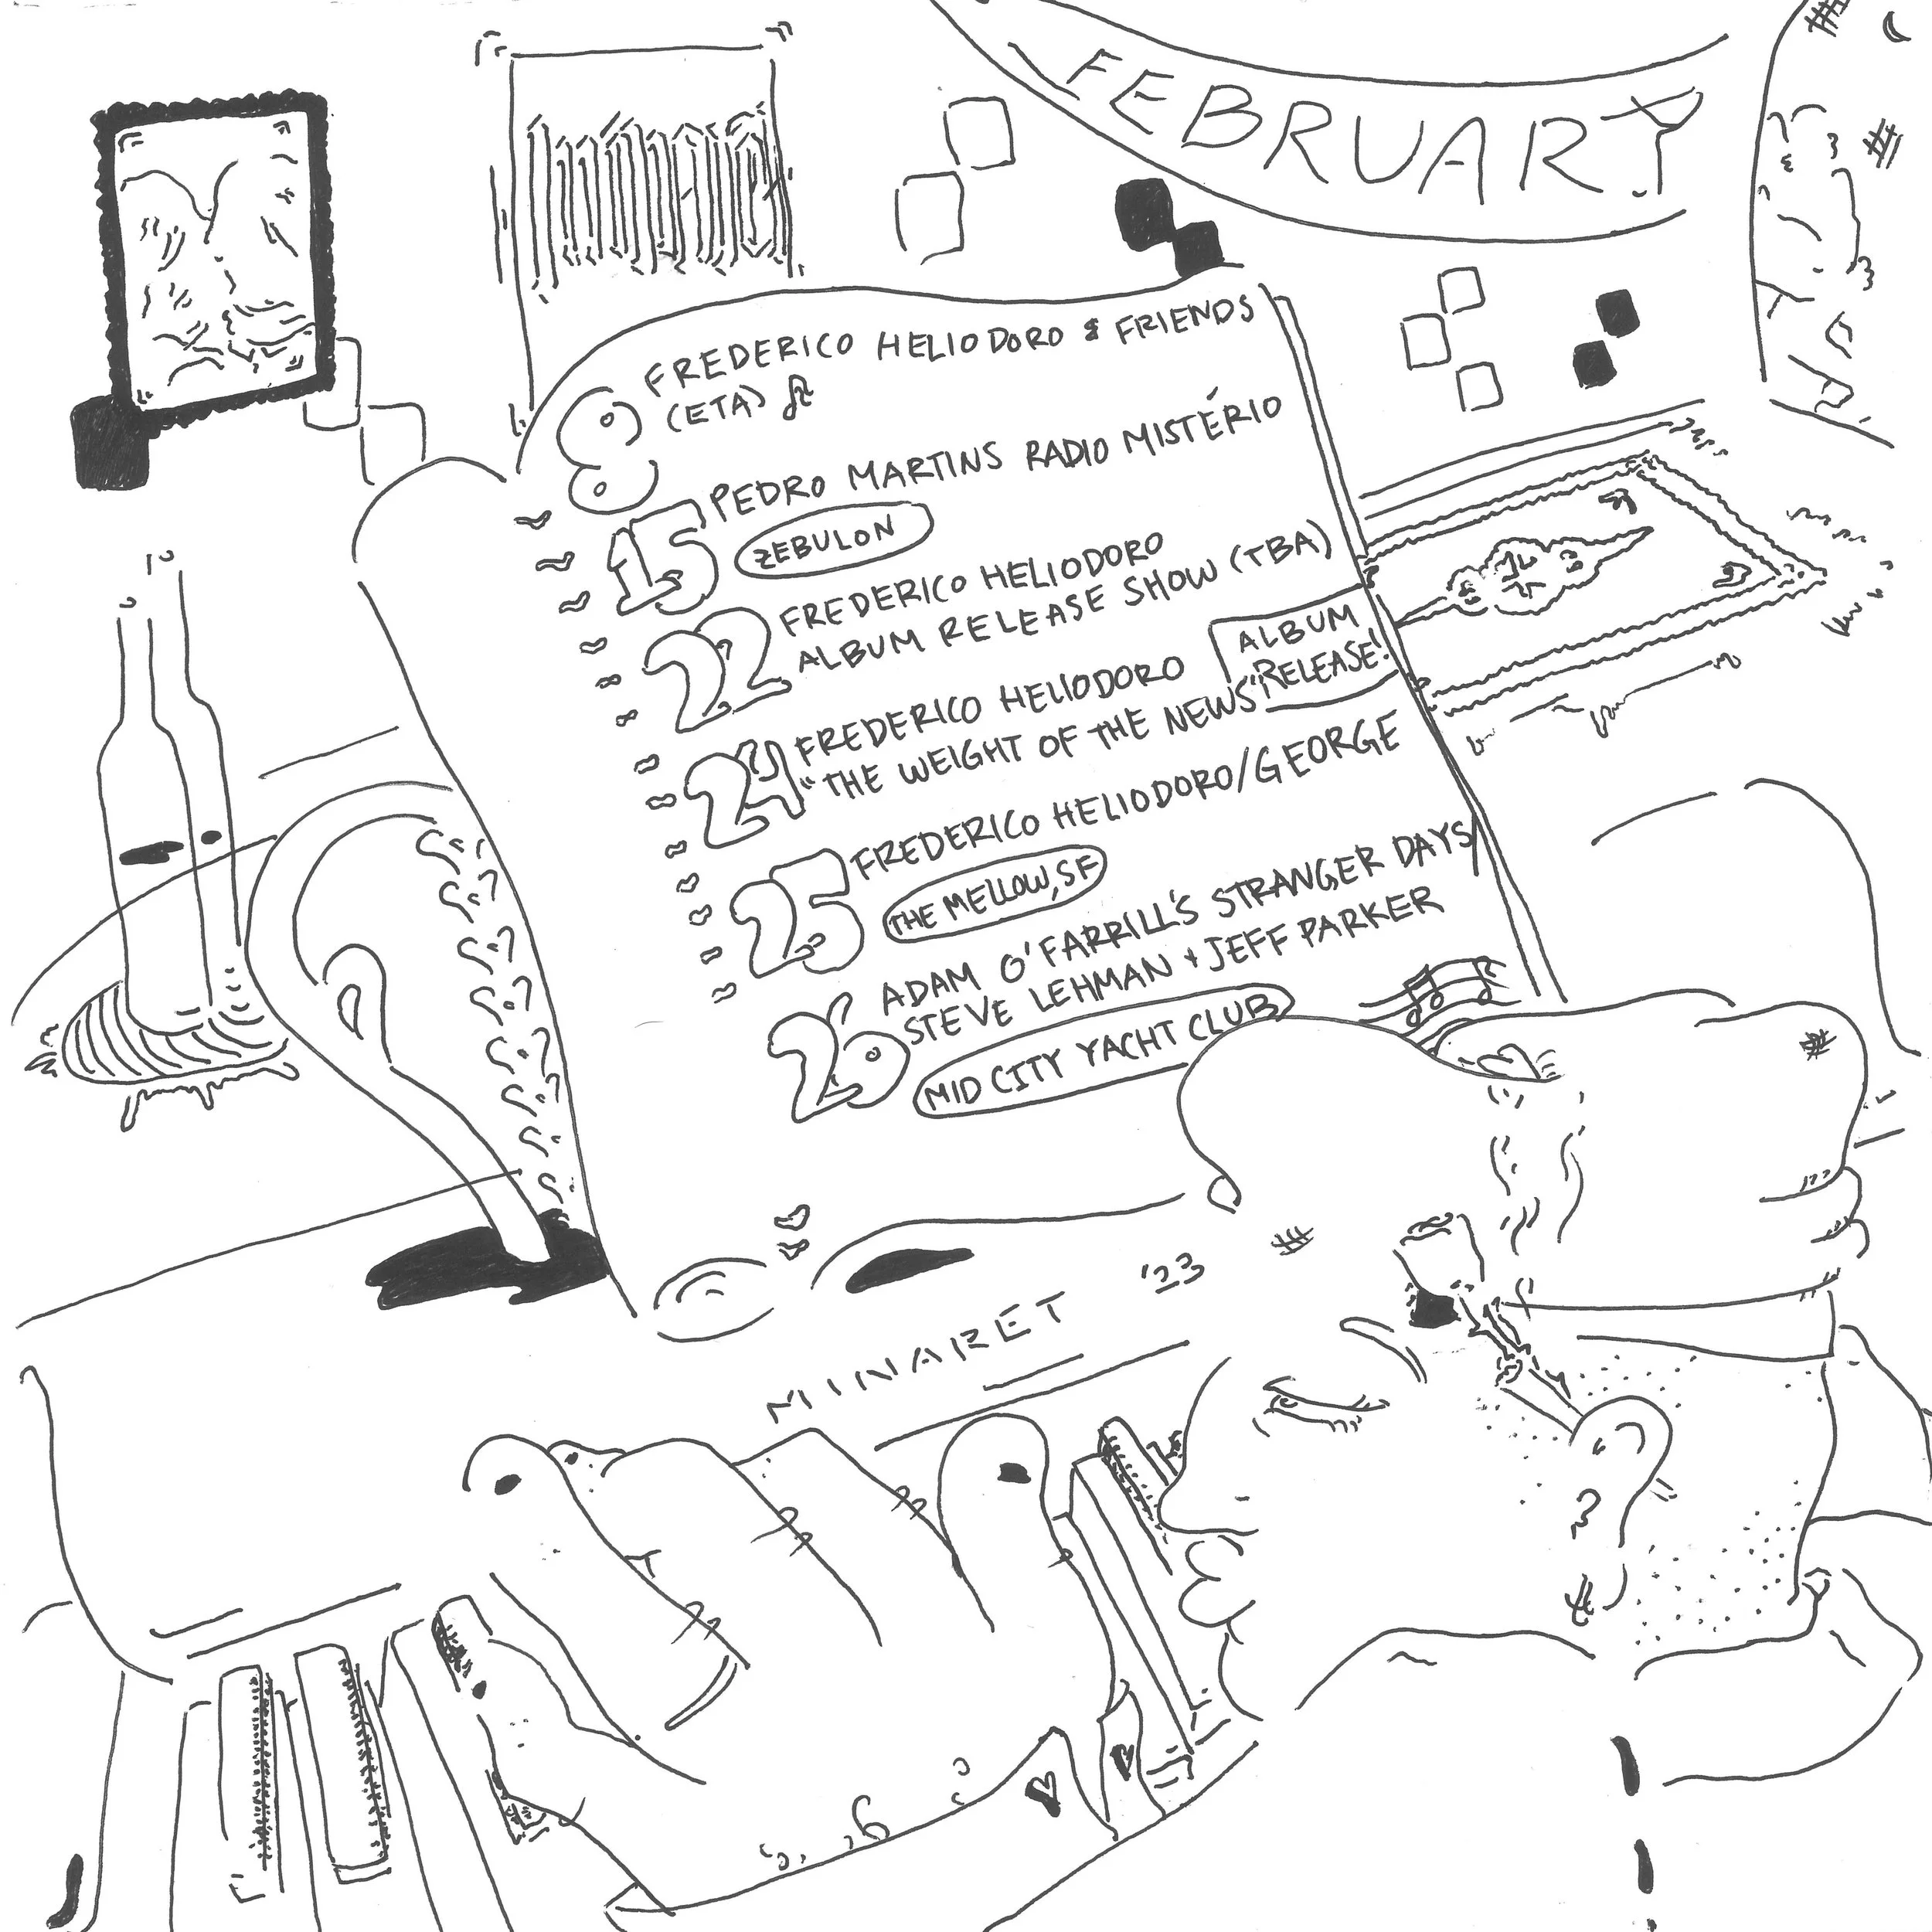 FEBRUARY
minaret
8 FREDERICO HELIODORO & FRIENDS
(ETA)
15 PEDRO MARTINS RADIO MISTÉRIO
ZEBULON
22 FREDERICO HELIODORO
ALBUM RELEASE SHOW (TBA)
24 FREDERICO HELIODORO
"THE WEIGHT OF THE NEWS"
ALBUM
RELEASE!
25 FREDERICO HELIODORO/GEORGE
THE MELLOW, SF
26 ADAM O'FARRILL'S STRANGER DAYS
STEVE LEHMAN + JEFF PARKER
MID CITY YACHT CLUB
MINARET '23